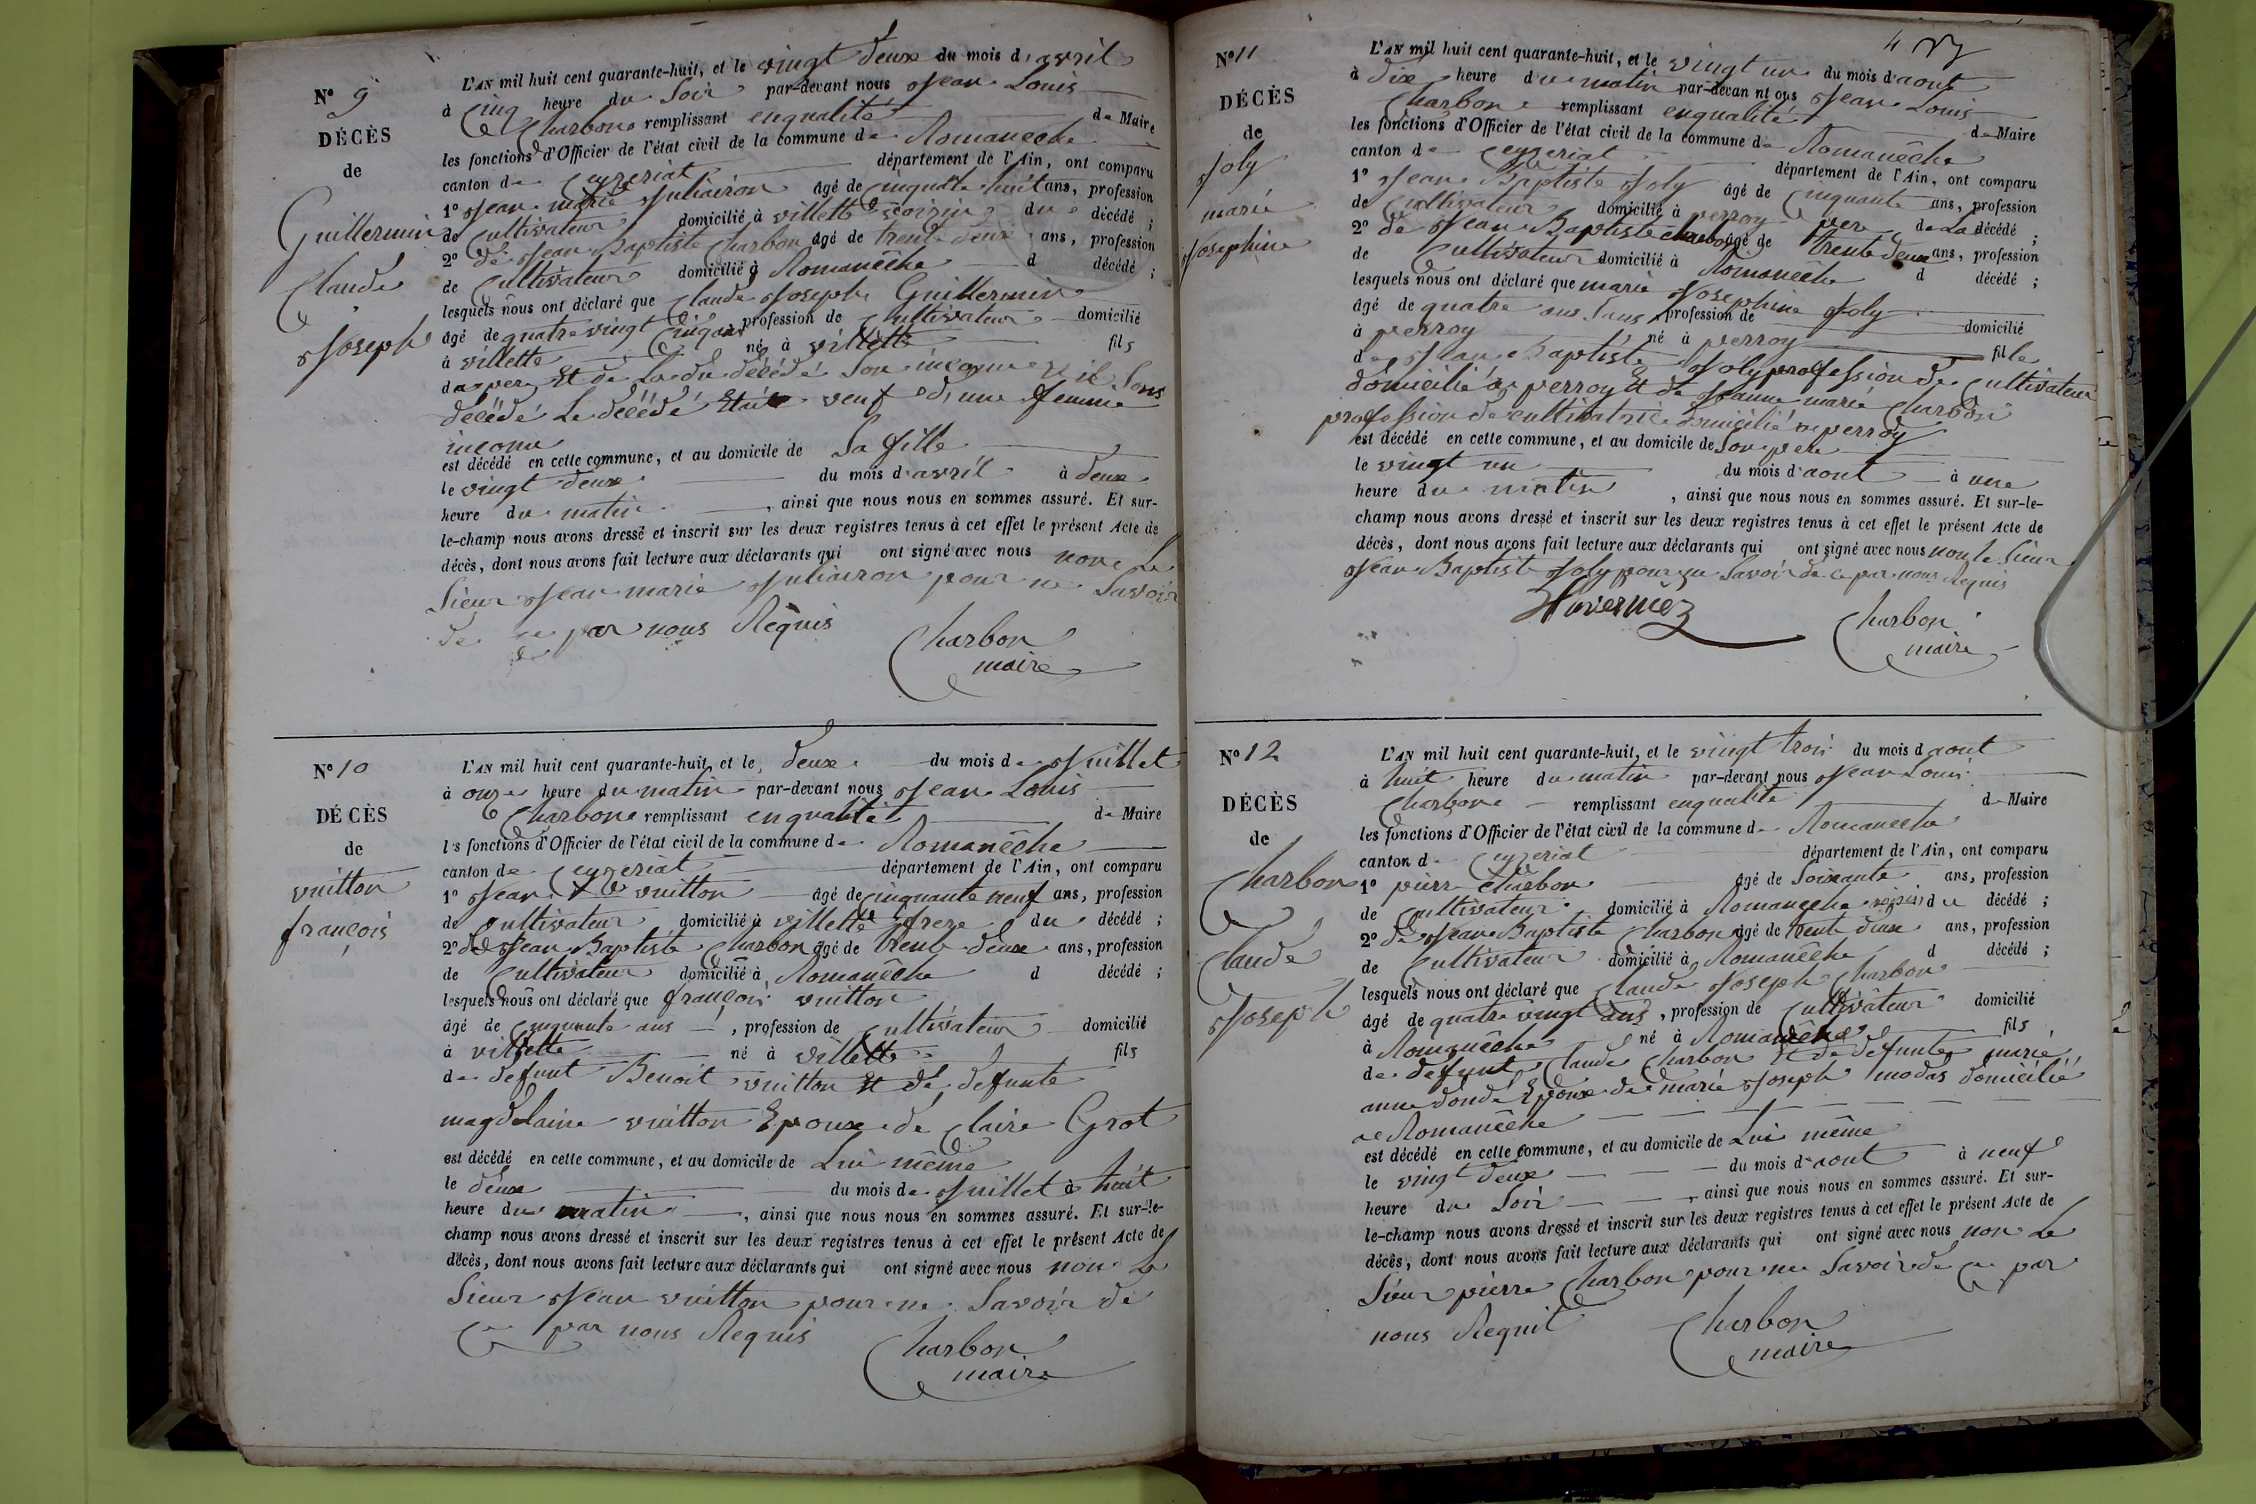 N° 9
DÉCÈS
de
Guillermin
Claude
Joseph
L'AN mil huit cent quarante-huit, et le vingt deux du mois d'avril
à cinq heure du soir par-devant nous Jean Louis
Charbon remplissant enqualité de Maire
les fonctions d'Officier de l'état civil de la commune de Romanèche
canton de Ceyzeriat département de l'Ain, ont comparu
1° Jean marie Juliairon âgé de cinquante huit ans, profession
de Cultivateur domicilié à villette voisin du décédé ;
2° de Jean Baptiste Charbon âgé de trente deux ans, profession
de Cultivateur domicilié à Romanêche d décédé ;
lesquels nous ont déclaré que Claude Joseph Guillermin
âgé de quatre vingt cinq ans profession de Cultivateur domicilié
à villette né à villette fils
de pere Et de du décédé Son inconnu il Sons
décédé Le décédé Etait veuf d'une femme
inconu
est décédé en cette commune, et au domicile de Sa fille
le vingt deux du mois d'avril à deux
heure du matin , ainsi que nous nous en sommes assuré. Et sur-
le-champ nous avons dressé et inscrit sur les deux registres tenus à cet effet le présent Acte de
décès, dont nous avons fait lecture aux déclarants qui ont signé avec nous non Le
Sieur Jean marie Juliairon pour ne Savoir
de ce par nous Réquis
Charbon
maire
N° 10
DÉCÈS
de
vuitton
françois
L'AN mil huit cent quarante-huit, et le deux du mois de Juillet
à onze heure du matin par-devant nous Jean Louis
Charbon remplissant enqualité de Maire
l s fonctions d'Officier de l'état civil de la commune de Romanêche
canton de Ceyzeriat département de l'Ain, ont comparu
1° Jean vuitton âgé de cinquante neuf ans, profession
de Cultivateur domicilié à villette frere du décédé ;
2° de Jean Baptiste Charbon âgé de trente deux ans, profession
de Cultivateur domicilié à Romanêche d décédé ;
lesquels nous ont déclaré que françois vuitton
âgé de cinquante ans , profession de Cultivateur domicilié
à villette né à villette fils
de defunt Benoit vuitton Et de defunte
magdelaine vuitton Epoux de Claire Grot
est décédé en cette commune, et au domicile de Lui même
le deux du mois de Juillet à huit
heure du matin , ainsi que nous nous en sommes assuré. Et sur-le-
champ nous avons dressé et inscrit sur les deux registres tenus à cet effet le présent Acte de
décès, dont nous avons fait lecture aux déclarants qui ont signé avec nous non Le
Sieur Jean vuitton pour ne Savoir de
ce par nous Requis
Charbon
maire
N° 11
DÉCÈS
de
Joly
marie
Josephine
L'AN mil huit cent quarante-huit, et le vingt un du mois d'aout
à dix heure du matin par-devan nt ous Jean Louis
Charbon remplissant enqualité de Maire
les fonctions d'Officier de l'état civil de la commune de Romanêche
canton de Ceyzeriat département de l'Ain, ont comparu
1° Jean Baptiste Joly âgé de Cinquante ans, profession
de Cultivateur domicilié à perroy pere de La décédé ;
2° de Jean Baptiste charbon âgé de trente deux ans, profession
de Cultivateur domicilié à Romanêche d décédé ;
lesquels nous ont déclaré que marie Josephine Joly
âgé de quatre ans Sans profession de domicilié
à perroy né à perroy fille
de Jean Baptiste Joly profession de Cultivateur
domicilié a perroy Et de Jeanne marie Charbon
profession de cultivatrice domicilié a perroy
est décédé en cette commune, et au domicile de Son pere
le vingt un du mois d'aout à une
heure du matin , ainsi que nous nous en sommes assuré. Et sur-le-
champ nous avons dressé et inscrit sur les deux registres tenus à cet effet le présent Acte de
décès, dont nous avons fait lecture aux déclarants qui ont signé avec nous non le Sieur
Jean Baptiste Joly pour ne Savoir de ce par nous Requis
Charbon
maire
N° 12
DÉCÈS
de
Charbon
Claude
Joseph
L'AN mil huit cent quarante-huit, et le vingt trois du mois d aout
à huit heure du matin par-devant nous Jean Louis
Charbon remplissant enqualité de Maire
les fonctions d'Officier de l'état civil de la commune de Romanêche
canton de Ceyzeriat département de l'Ain, ont comparu
1° pierre Charbon âgé de Soixante ans, profession
de Cultivateur domicilié à Romanêche voisin du décédé ;
2° de Jean Baptiste Charbon âgé de trente deux ans, profession
de Cultivateur domicilié à Romanêche d décédé ;
lesquels nous ont déclaré que Claude Joseph Charbon
âgé de quatre vingt ans , profession de Cultivateur domicilié
à Romanêche né à Romanêche fils
de defunt Claude Charbon Et de defunte marie
anne dondé Epoux de marie Joseph modas domicilié
a Romanêche
est décédé en cette commune, et au domicile de Lui même
le vingt deux du mois d'aout à neuf
heure du Soir , ainsi que nous nous en sommes assuré. Et sur-
le-champ nous avons dressé et inscrit sur les deux registres tenus à cet effet le présent Acte de
décès, dont nous avons fait lecture aux déclarants qui ont signé avec nous non Le
Sieur pierre Charbon pour ne Savoir de ce par
nous Requit
Charbon
maire